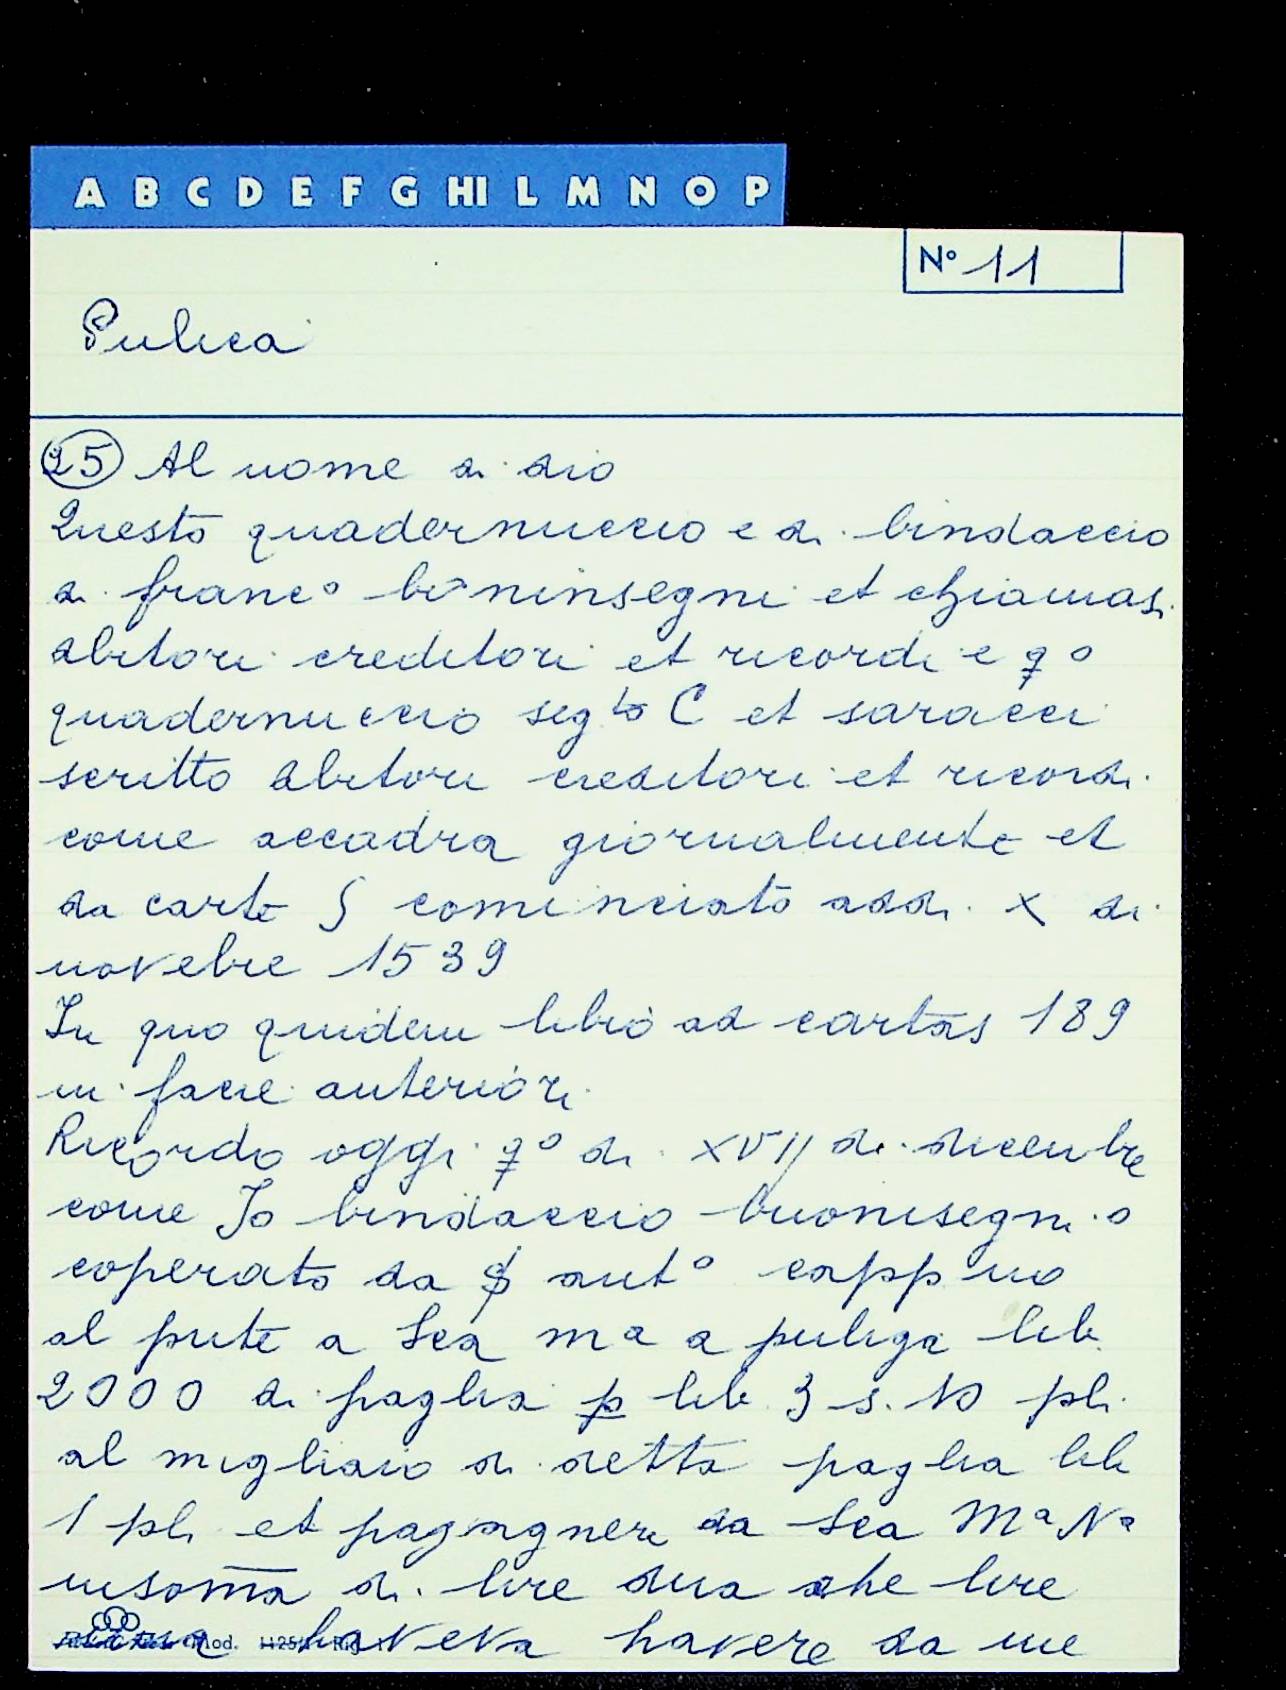 A B C D E F G HI L M N O P
N° 11
Pulica
25 Al nome di dio
Questo quadernuccio e di bindaccio
di franc° boninsegni et chiamasi
debitori creditori et ricordi e q°
quadernuccio seg^to C et saracci
scritto debitori creditori et ricordi
come accadra giornalmente et
da carte cominciato addi X di
novebre 1539
In quo quidem libro ad cartas 189
in facie anteriori
Ricordo oggi q° di XVII di dicembre
come Io bindaccio buonisegni o
coperato da ant°
al prete a Sca mª a puliga lib
2000 di paglia p lib 3 s. 10 pli
al migliaio di detta paglia lib
1 pli et da Sca Mª Nª
in somma di lire dua che lire
haveva havere da me
Mod.